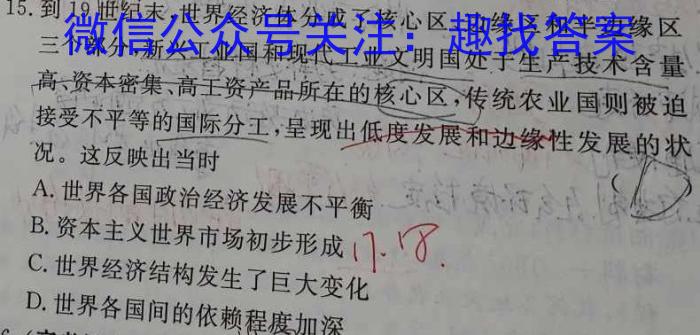 15. 到19世纪末,世界经济体分成了核心区、边缘区和半边缘区
微信公众号关注:趣找答案
三个部分,新兴工业国和现代工业文明国处于生产技术含量
高、资本密集、高工资产品所在的核心区,传统农业国则被迫
接受不平等的国际分工,呈现出低度发展和边缘性发展的状
况。这反映出当时
( D )
A. 世界各国政治经济发展不平衡
B. 资本主义世界市场初步形成 17.18.
C. 世界经济结构发生了巨大变化
D. 世界各国间的依赖程度加深